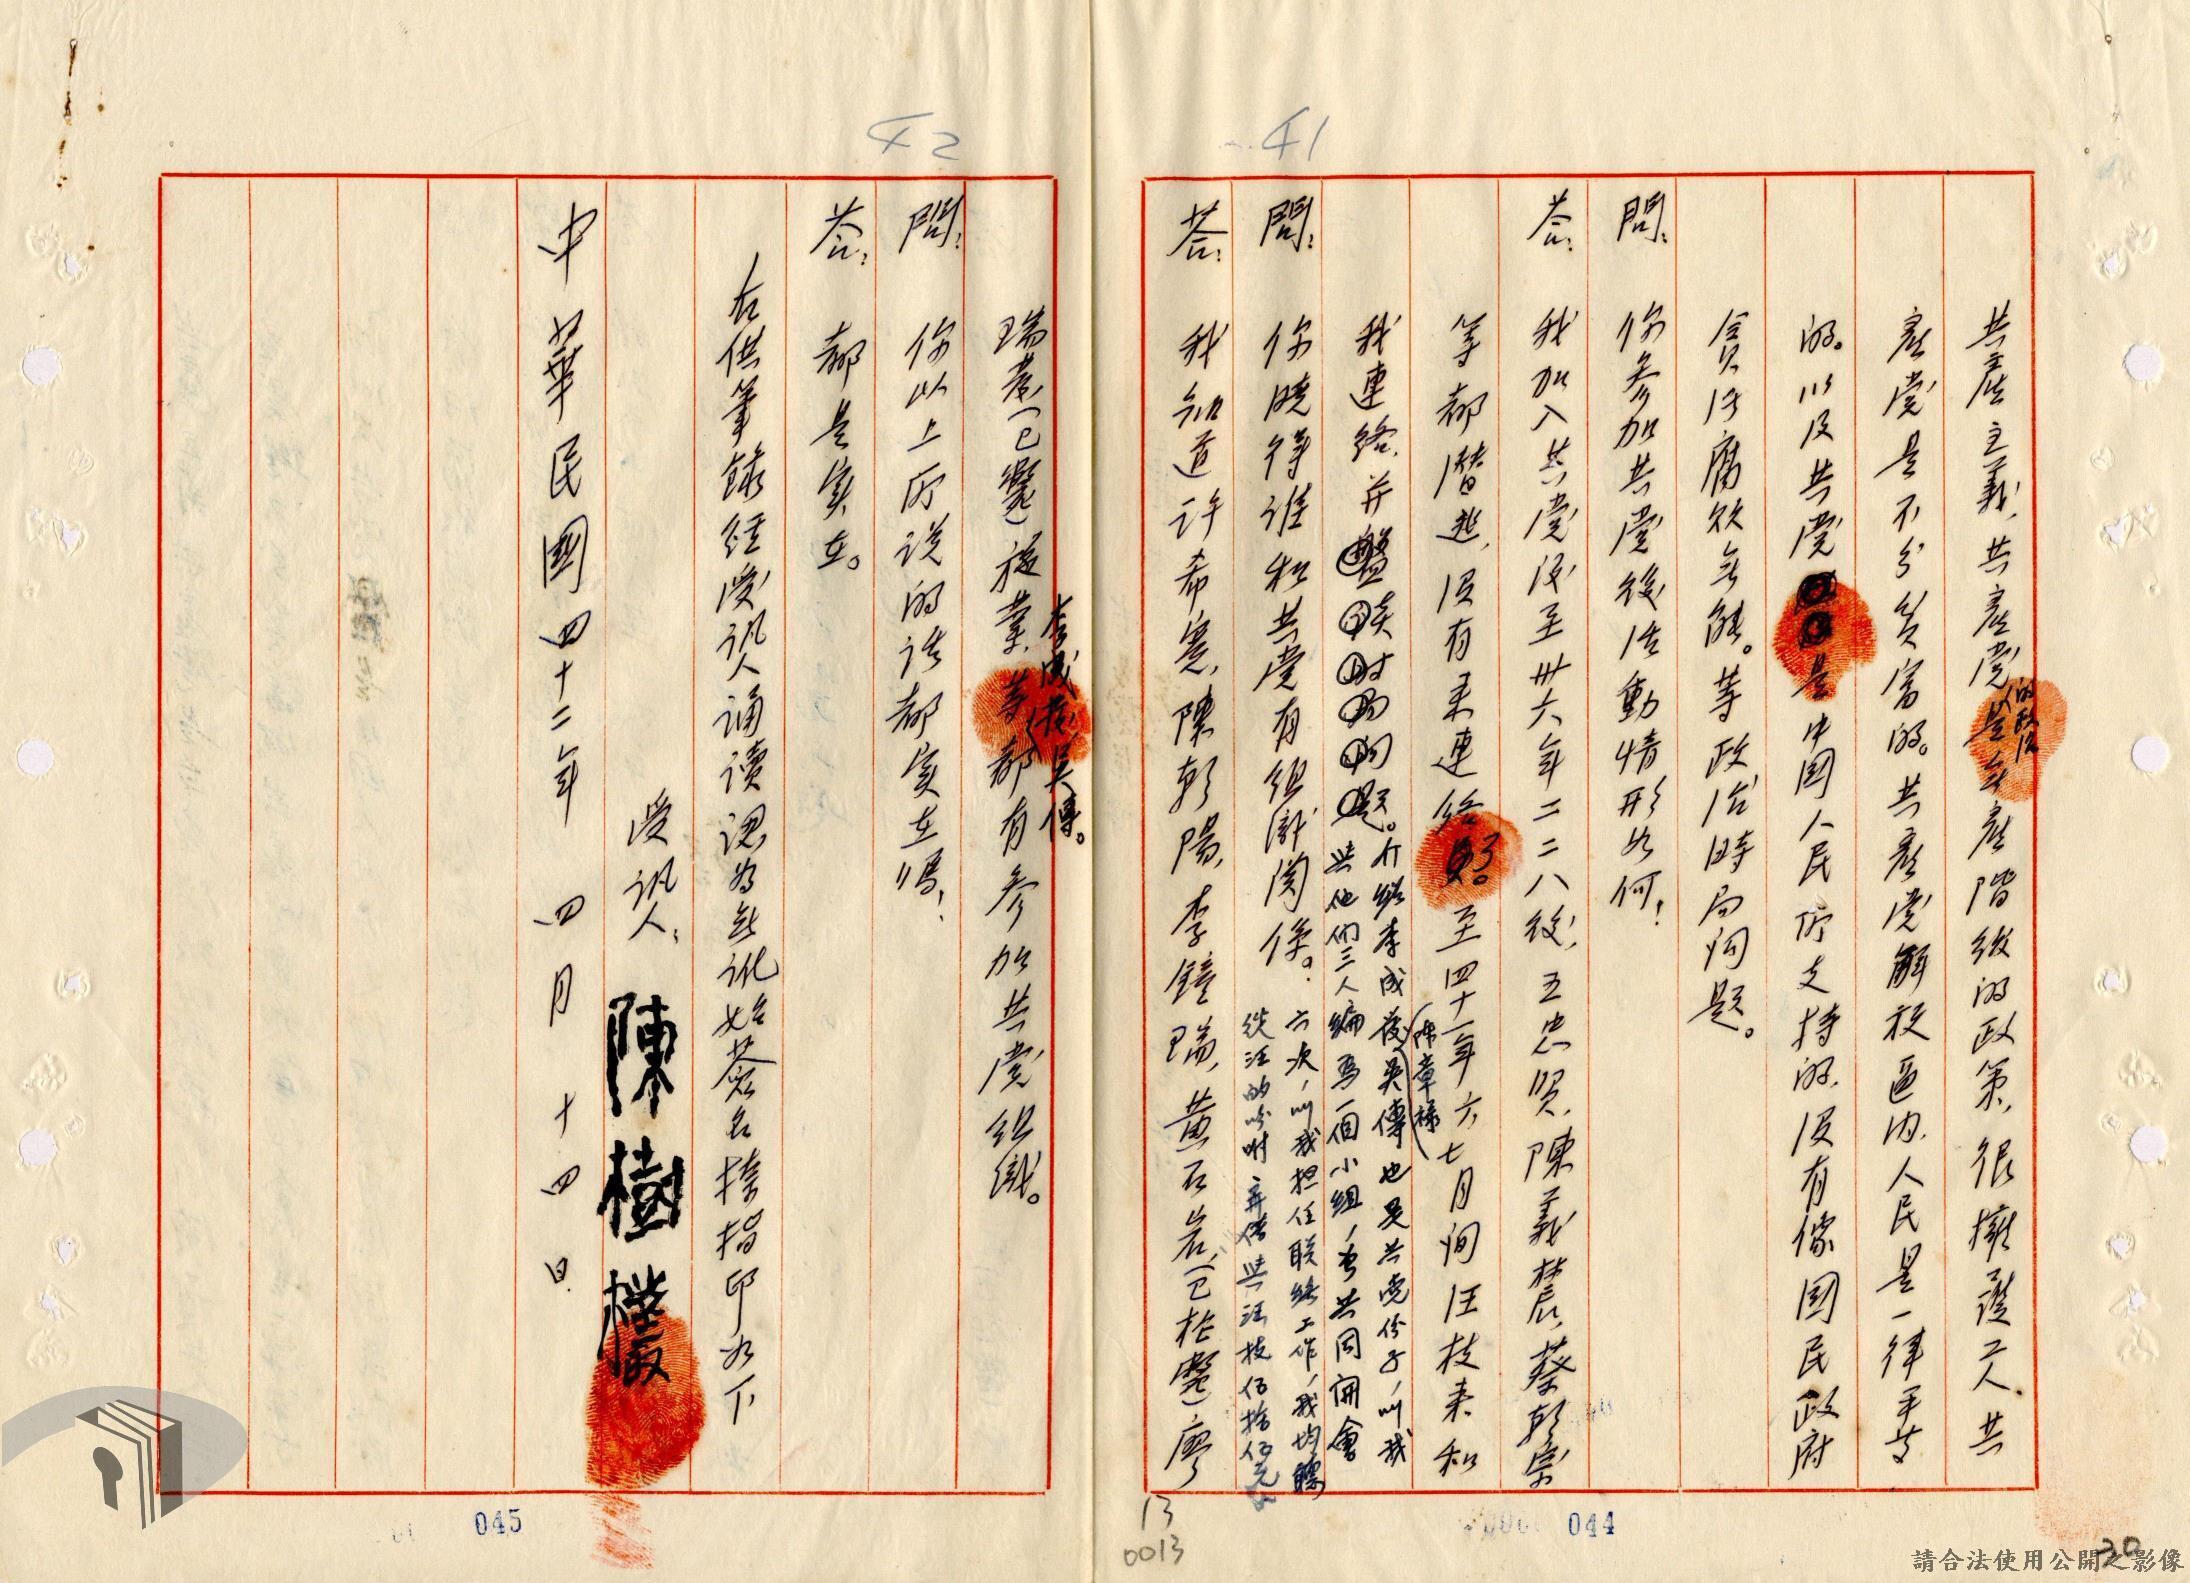 41
共產主義，共產黨的政治是無產階級的政策，很擁護工人。共
產黨是不分貧富的。共產黨解放區內，人民是一律平等
的。以及共黨是中国人民所支持的，沒有像國民政府
貪污腐敗無能。等政治時局问題。
問：你參加共党後活動情形如何？
答：我加入共党後至卅六年二二八後，王忠賢，陳義農，蔡朝宗
等都潛逃，沒有来連絡了。至四十一年六、七月间汪枝来和
（陳章祿）
我連絡，并談时局问題。介紹李成發吳傳也是共党份子，叫我
與他們三人編為一個小組，曾共同開會
六次，叫我担任联絡工作，我均聽
從汪的吩咐，弃借與汪枝伍拾伍元
問：你曉得誰和共党有組織関係？
答：我知道许希寬，陳朝陽，李鐘瑞，黃石岩，（已槍斃）廖
13
0013
044
30
42
瑞發（已斃）振業，李成發、吳傳。等都有參加共党組織。
問：你以上所说的话都实在嗎？
答：都是实在。
右供筆錄經受讯人诵讀認為無讹始簽名捺指印如下
受讯人：陳樹欉
中華民國四十二年四月十四日
045
請合法使用公開之影像